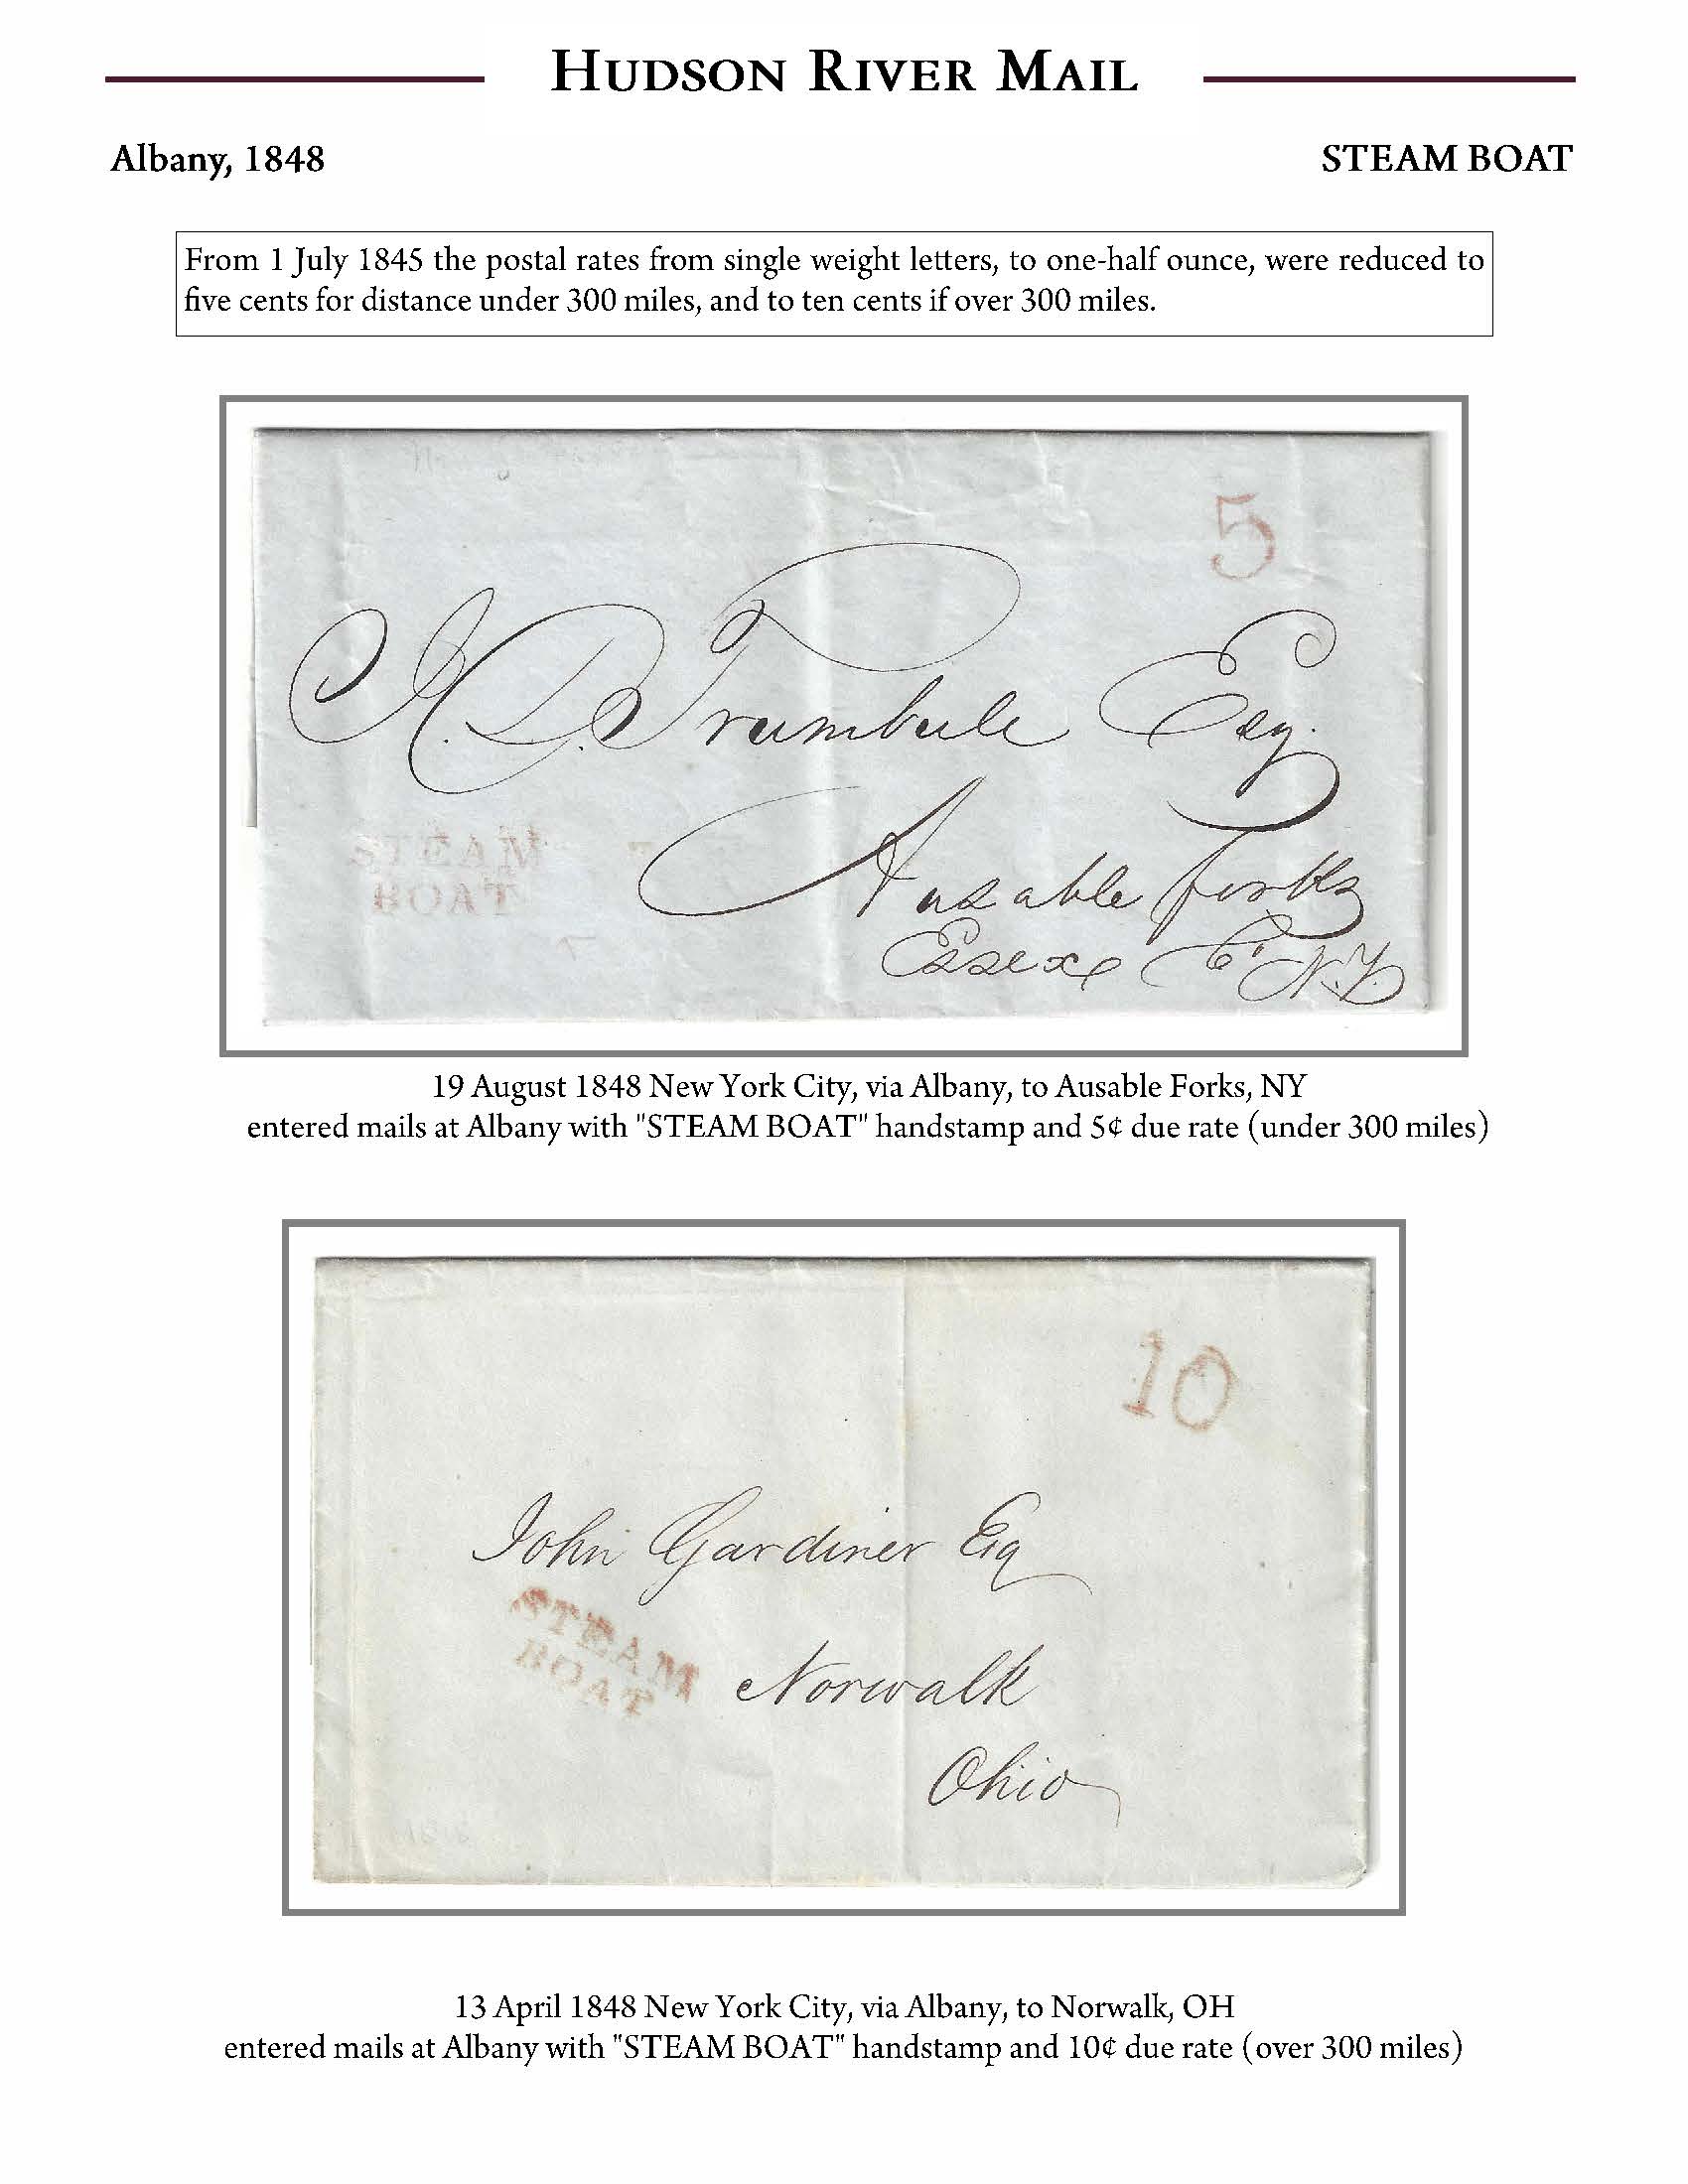 HUDSON RIVER MAIL
Albany, 1848
STEAM BOAT
From 1 July 1845 the postal rates from single weight letters, to one-half ounce, were reduced to
five cents for distance under 300 miles, and to ten cents if over 300 miles.
5
Trumbull Esq.
STEAM
BOAT
Ausable forks
Essex Co N.Y.
19 August 1848 New York City, via Albany, to Ausable Forks, NY
entered mails at Albany with "STEAM BOAT" handstamp and 5¢ due rate (under 300 miles)
10
John Gardiner Esq
STEAM
BOAT
Norwalk
Ohio
13 April 1848 New York City, via Albany, to Norwalk, OH
entered mails at Albany with "STEAM BOAT" handstamp and 10¢ due rate (over 300 miles)